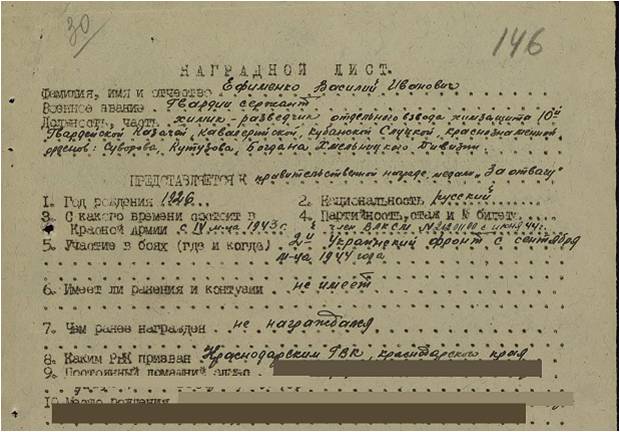 30
146
НАГРАДНОЙ ЛИСТ.
Фамилия, имя и отчество Ефименко Василий Иванович
Военное звание Гвардии сержант
Должность, часть химик-разведчик отдельного взвода химзащита 10й
Гвардейской Казачей Кавалерийской, Кубанской Слуцкой, краснознаменной
орденов: Суворова, Кутузова, Богдана Хмельницкого Дивизии.
ПРЕДСТАВЛЯЕТСЯ К правительственной награде медали "За отвагу"
1. Год рождения 1926.. 2. Национальность русский
3. С какого времени состоит в 4. Партийность, стаж и № билета
Красной Армии с IV м-ца 1943 г. член ВЛКСМ с июня 44г.
5. Участие в боях (где и когда) 2й Украинский фронт с сентября
м-ца 1944 года
6. Имеет ли ранения и контузии не имеет
7. Чем ранее награжден не награждался
8. Каким РВК призван Краснодарским ГВК, краснодарского края
9. Постоянный домашний адрес
10. Место рождения